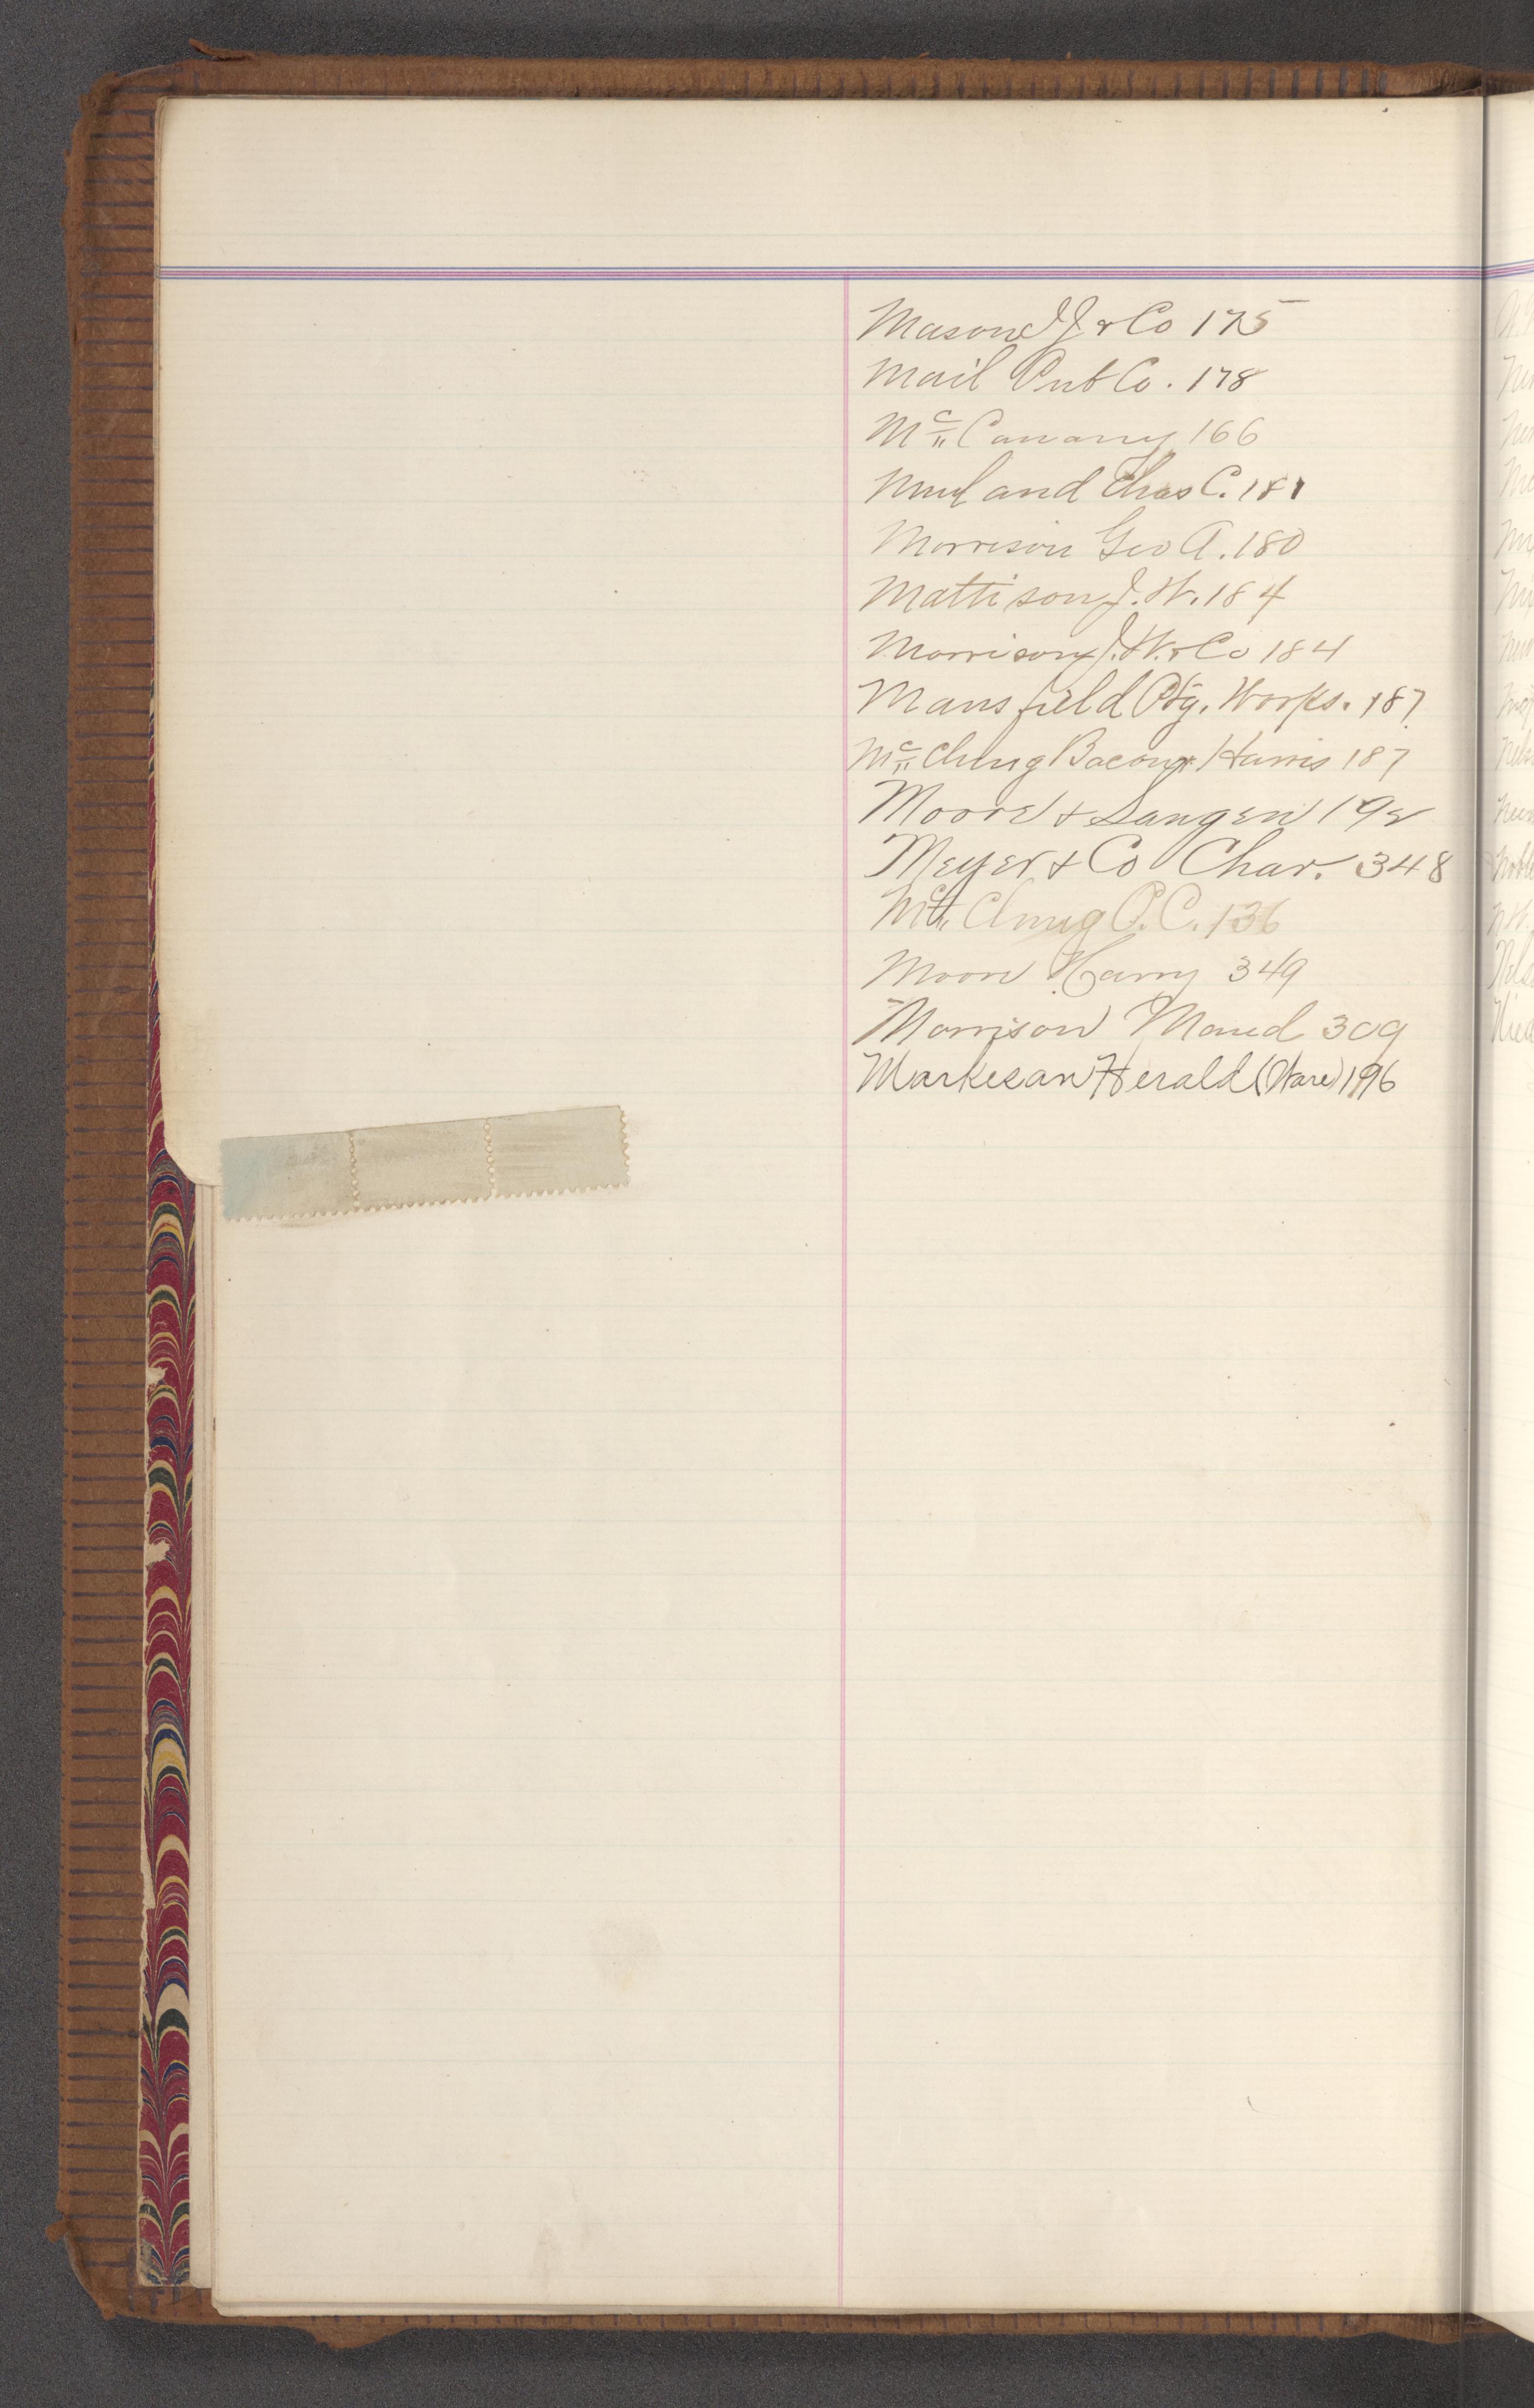 Mason J. J. & Co 175
Mail Pub Co. 178
Mc Canany 166
and Chas C. 181
Morrison Geo A. 180
Mattison J. W. 184
Morrison J. W. & Co 184
Mansfield Ptg. Works. 187
Mc Clung Bacon & Harris 187
Moore & Langen 192
Meyer & Co Char. 348
Mc Clung P. C. 136
Moore Harry 349
Morrison Maud 309
Markesan Herald (Ware) 196